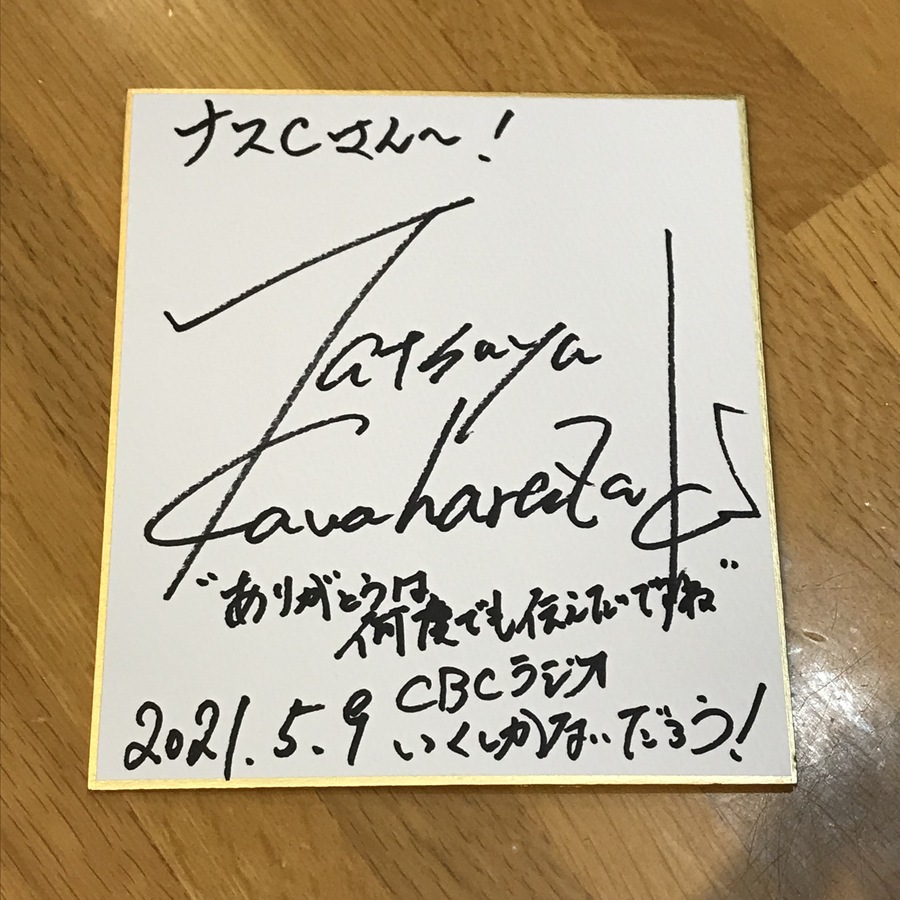 ナスCさん〜!
Tatsuya
Kawahara
"ありがとうは
何度でも伝えたいですね"
CBCラジオ
2021.5.9 いくしかないだろう!